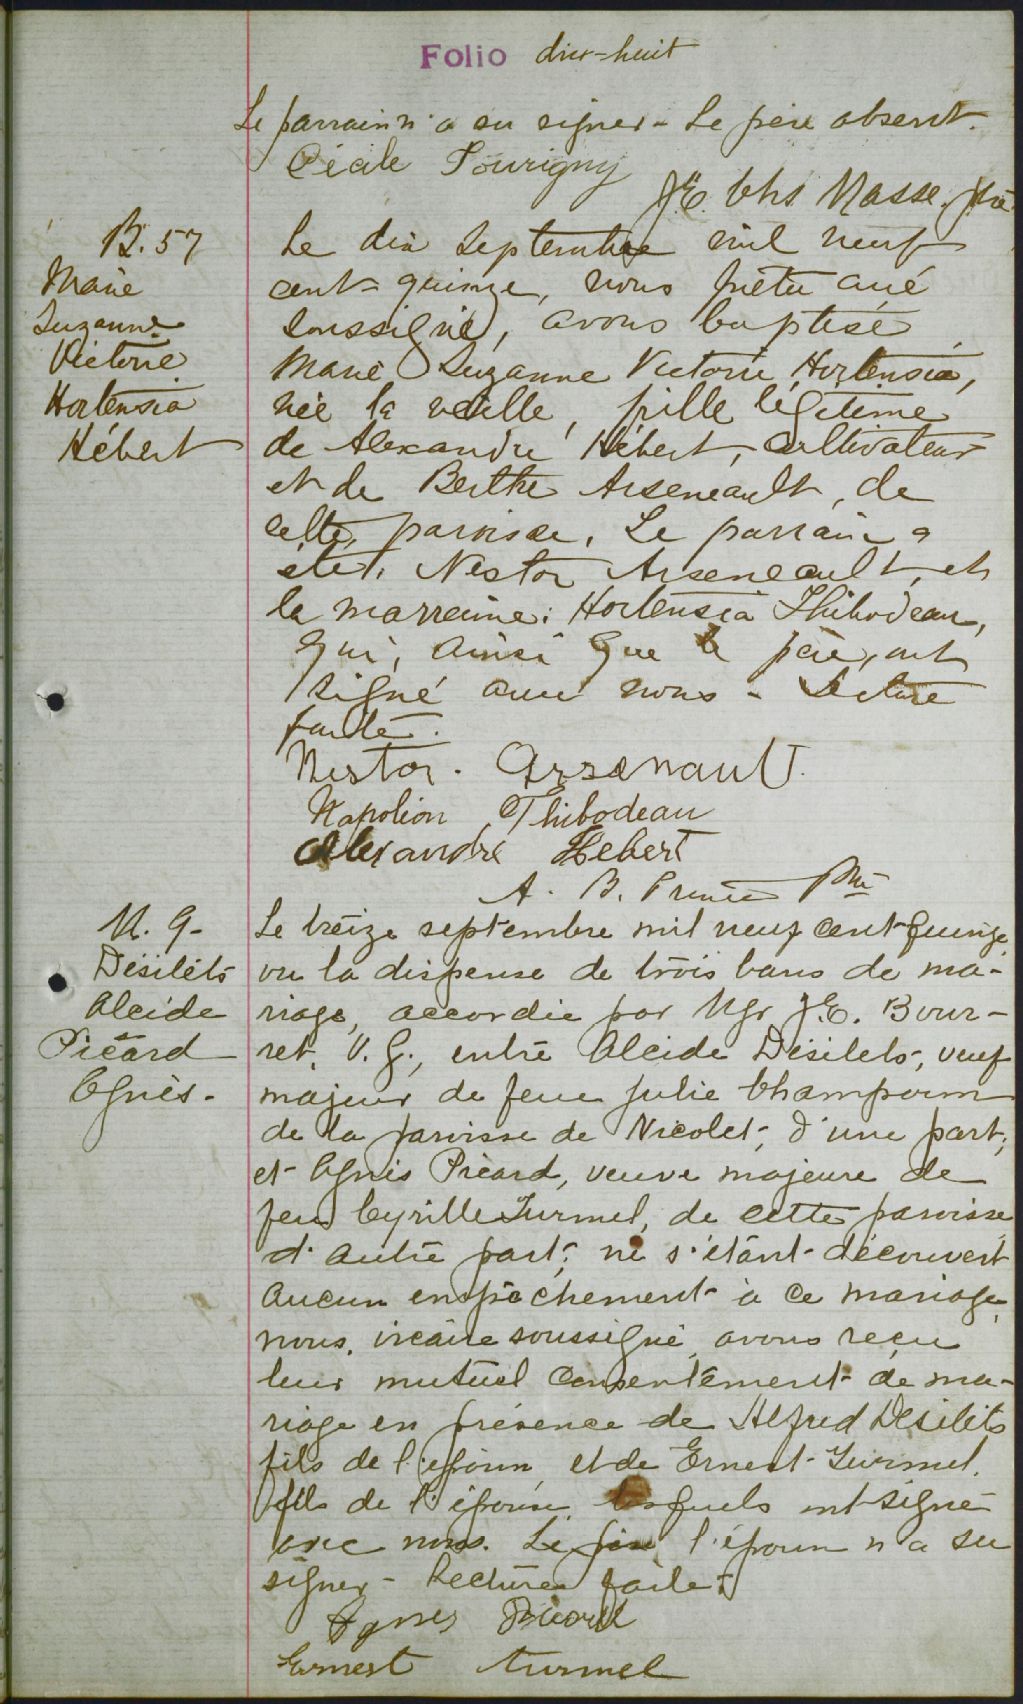 Folio dix-huit
Le parrain n'a su signer - Le père absent.
Cécile Tourigny
J.E. Chs Masse. ptre
B. 57
Marie
Suzanne
Victorie
Hortensia
Hébert
Le dix septembre mil neuf
cent-quinze, nous prêtre curé
soussigné, avons baptisé
Marie Suzanne Victorie Hortensia,
née la veille, fille légitime
de Alexandre Hébert, cultivateur
et de Berthe Arseneault, de
cette paroisse. Le parrain a
été: Nestor Arseneault, et
la marraine: Hortensia Thibodeau,
qui, ainsi que le père, ont
signé avec nous - Lecture
faite.
Nestor. Arsenault.
Napoléon Thibodeau
Alexandre Hebert
A. B. Ptre
M. 9-
Désilets
Alcide
et
Picard
Agnès.
Le treize septembre mil neuf cent-quinze,
vu la dispense de trois bans de ma-
riage, accordée par Mgr J.E. Bour-
ret, V.G., entre Alcide Désilets, veuf
majeur de feue Julie Champoux
de la paroisse de Nicolet, d'une part;
et Agnès Picard, veuve majeure de
feu Cyrille Turmel, de cette paroisse
d'autre part; ne s'étant découvert
aucun empêchement à ce mariage,
nous, vicaire soussigné, avons reçu
leur mutuel consentement de ma-
riage en présence de Alfred Désilets
fils de l'époux, et de Ernest Turmel,
fils de l'épouse, lesquels ont signé
avec nous. Le père l'époux n'a su
signer - Lecture faite.
Agnes Picard
Ernest turmel